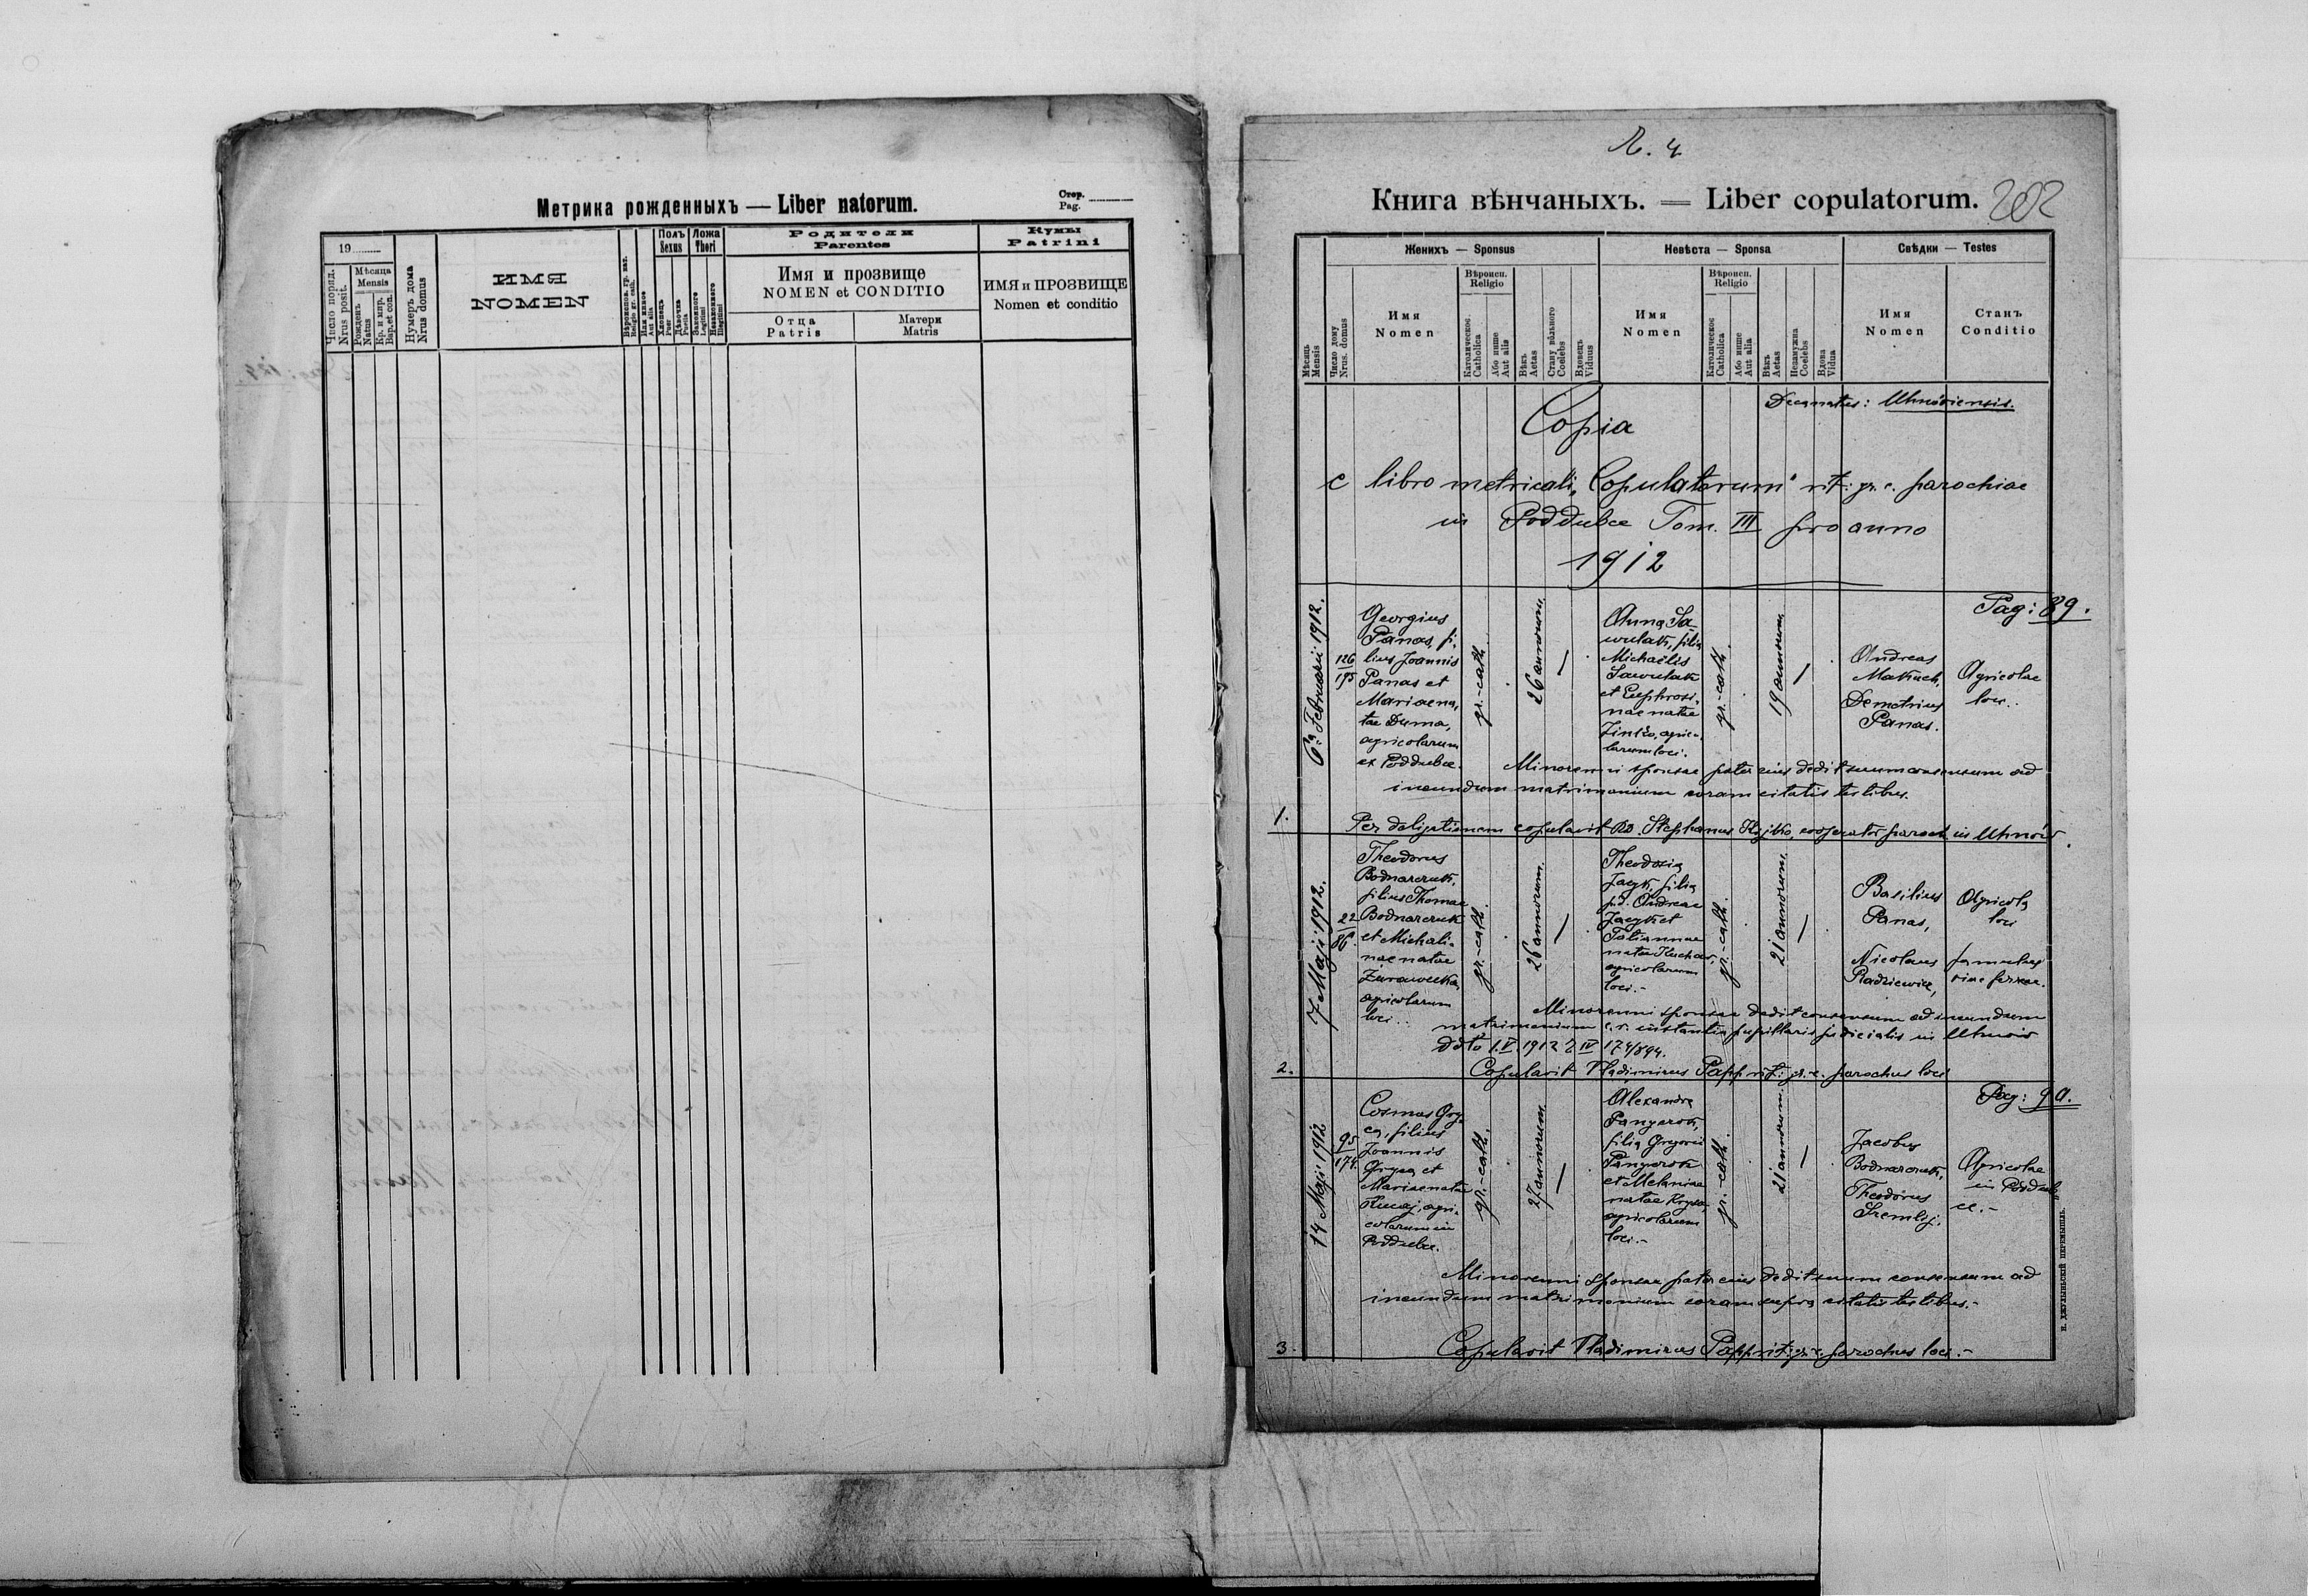 Метрика рожденныхъ — Liber natorum.
Стор.
Pag.
19
Число поряд.
Nrus posit.
Мѣсяца
Mensis
Рожденъ
Natus
Кр. и мир.
Bap. et con.
Нумеръ дома
Nrus domus
ИМЯ
NOMEN
Вѣроиспов. гр. кат.
Religio gr. cath.
Или инное
Aut alia
Полъ
Sexus
Хлопецъ
Puer
Дѣвочка
Puella
Ложа
Thori
Законного
Legitimi
Незаконного
Illegitimi
Родители
Parentes
Имя и прозвище
NOMEN et CONDITIO
Отца
Patris
Матери
Matris
Кумы
Patrini
ИМЯ и ПРОЗВИЩЕ
Nomen et conditio
202
Книга вѣнчаныхъ. — Liber copulatorum.
Мѣсяць
Mensis
Число дому
Nrus. domus
Женихъ — Sponsus
Имя
Nomen
Вѣроисп.
Religio
Католическое
Catholica
Або инше
Aut alia
Вѣкъ
Aetas
Стану вôльного
Coelebs
Вдовець
Viduus
Невѣста — Sponsa
Имя
Nomen
Вѣроисп.
Religio
Католическое
Catholica
Або инше
Aut alia
Вѣкъ
Aetas
Незамужна
Coelebs
Вдова
Vidua
Свѣдки — Testes
Имя
Nomen
Станъ
Conditio
Decanatus: Uhnoviensis.
Copia
e libro metricali „Copulatorum" rit: gr. c. parochiae
in Poddubce Tom. III pro anno
1912
Pag: 89.
1.
6a Februarii 1912.
126
195
Georgius
Panas, fi-
lius Joannis
Panas et
Mariae na-
tae Duma,
agricolarum
ex Poddubce.
gr.-cath.
26 annorum.
Anna Sa-
wulak, filia
Michaëlis
Sawulak
et Euphrosi-
nae natae
Zinko, agrico-
larum loci.
gr.-cath.
19 annorum
Andreas
Makuch,
Demetrius
Panas.
Agricolae
loci.
Minorenni sponsae pater eius dedit suum consensum ad
ineundum matrimonium coram citatis testibus.
Per delegationem copulavit RD. Stephanus Hyjko, cooperator paroch in Uhnów.
2.
7 Maji 1912.
22
86.
Theodorus
Bodnarczuk,
filius Thomae
Bodnarczuk
et Michali-
nae natae
Żurawecka,
agricolarum
loci.
gr.-cath.
26 annorum.
Theodosia
Jacyk, filia
p.d. Andreae
Jacyk et
Tatiannae
natae Kuchar,
agricolarum
loci.-
gr.-cath.
21 annorum.
Basilius
Panas,
Nicolaus
Radziewicz,
Agricola
loci
famulus
viae ferreae.
Minorenni sponsae dedit consensum ad ineundum
matrimonium c. r. instantia pupillaris judicialis in Uhnów
ddto 1.V.1912 IV 174/894.
Copulavit Vladimirus Papp rit: gr.-c. parochus loci
Pag: 90.
3.
14 Maji 1912
95
174.
Cosmas Gry-
ca, filius
Joannis
Gryca et
Mariae natae
agri-
colarum in
Poddubce.
gr.-cath.
27 annorum
Alexandra
filia Gregorii
et Melaniae
natae
agricolarum
loci.-
gr.-cath.
21 annorum
Jacobus
Bodnarczuk,
Theodorus
Agricolae
in Poddub-
ce.-
Minorenni sponsae pater eius dedit suum consensum ad
ineundum matrimonium coram supra citatis testibus.-
Copulavit Vladimirus Papp rit: gr. c. parochus loci.-
н. Джулыньскій Перемышль.